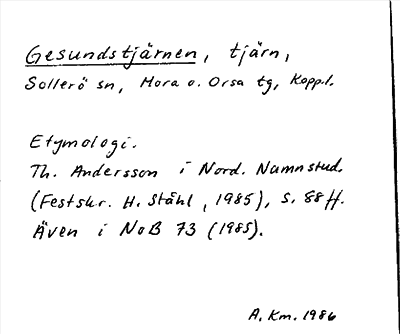 Gesundstjärnen, tjärn,
Sollerö sn, Mora o. Orsa tg, Kopp.l.
Etymologi.
Th. Andersson i Nord. Namnstud.
(Festskr. H. Ståhl, 1985), s. 88 ff.
Även i NoB 73 (1985).
A. Km. 1986